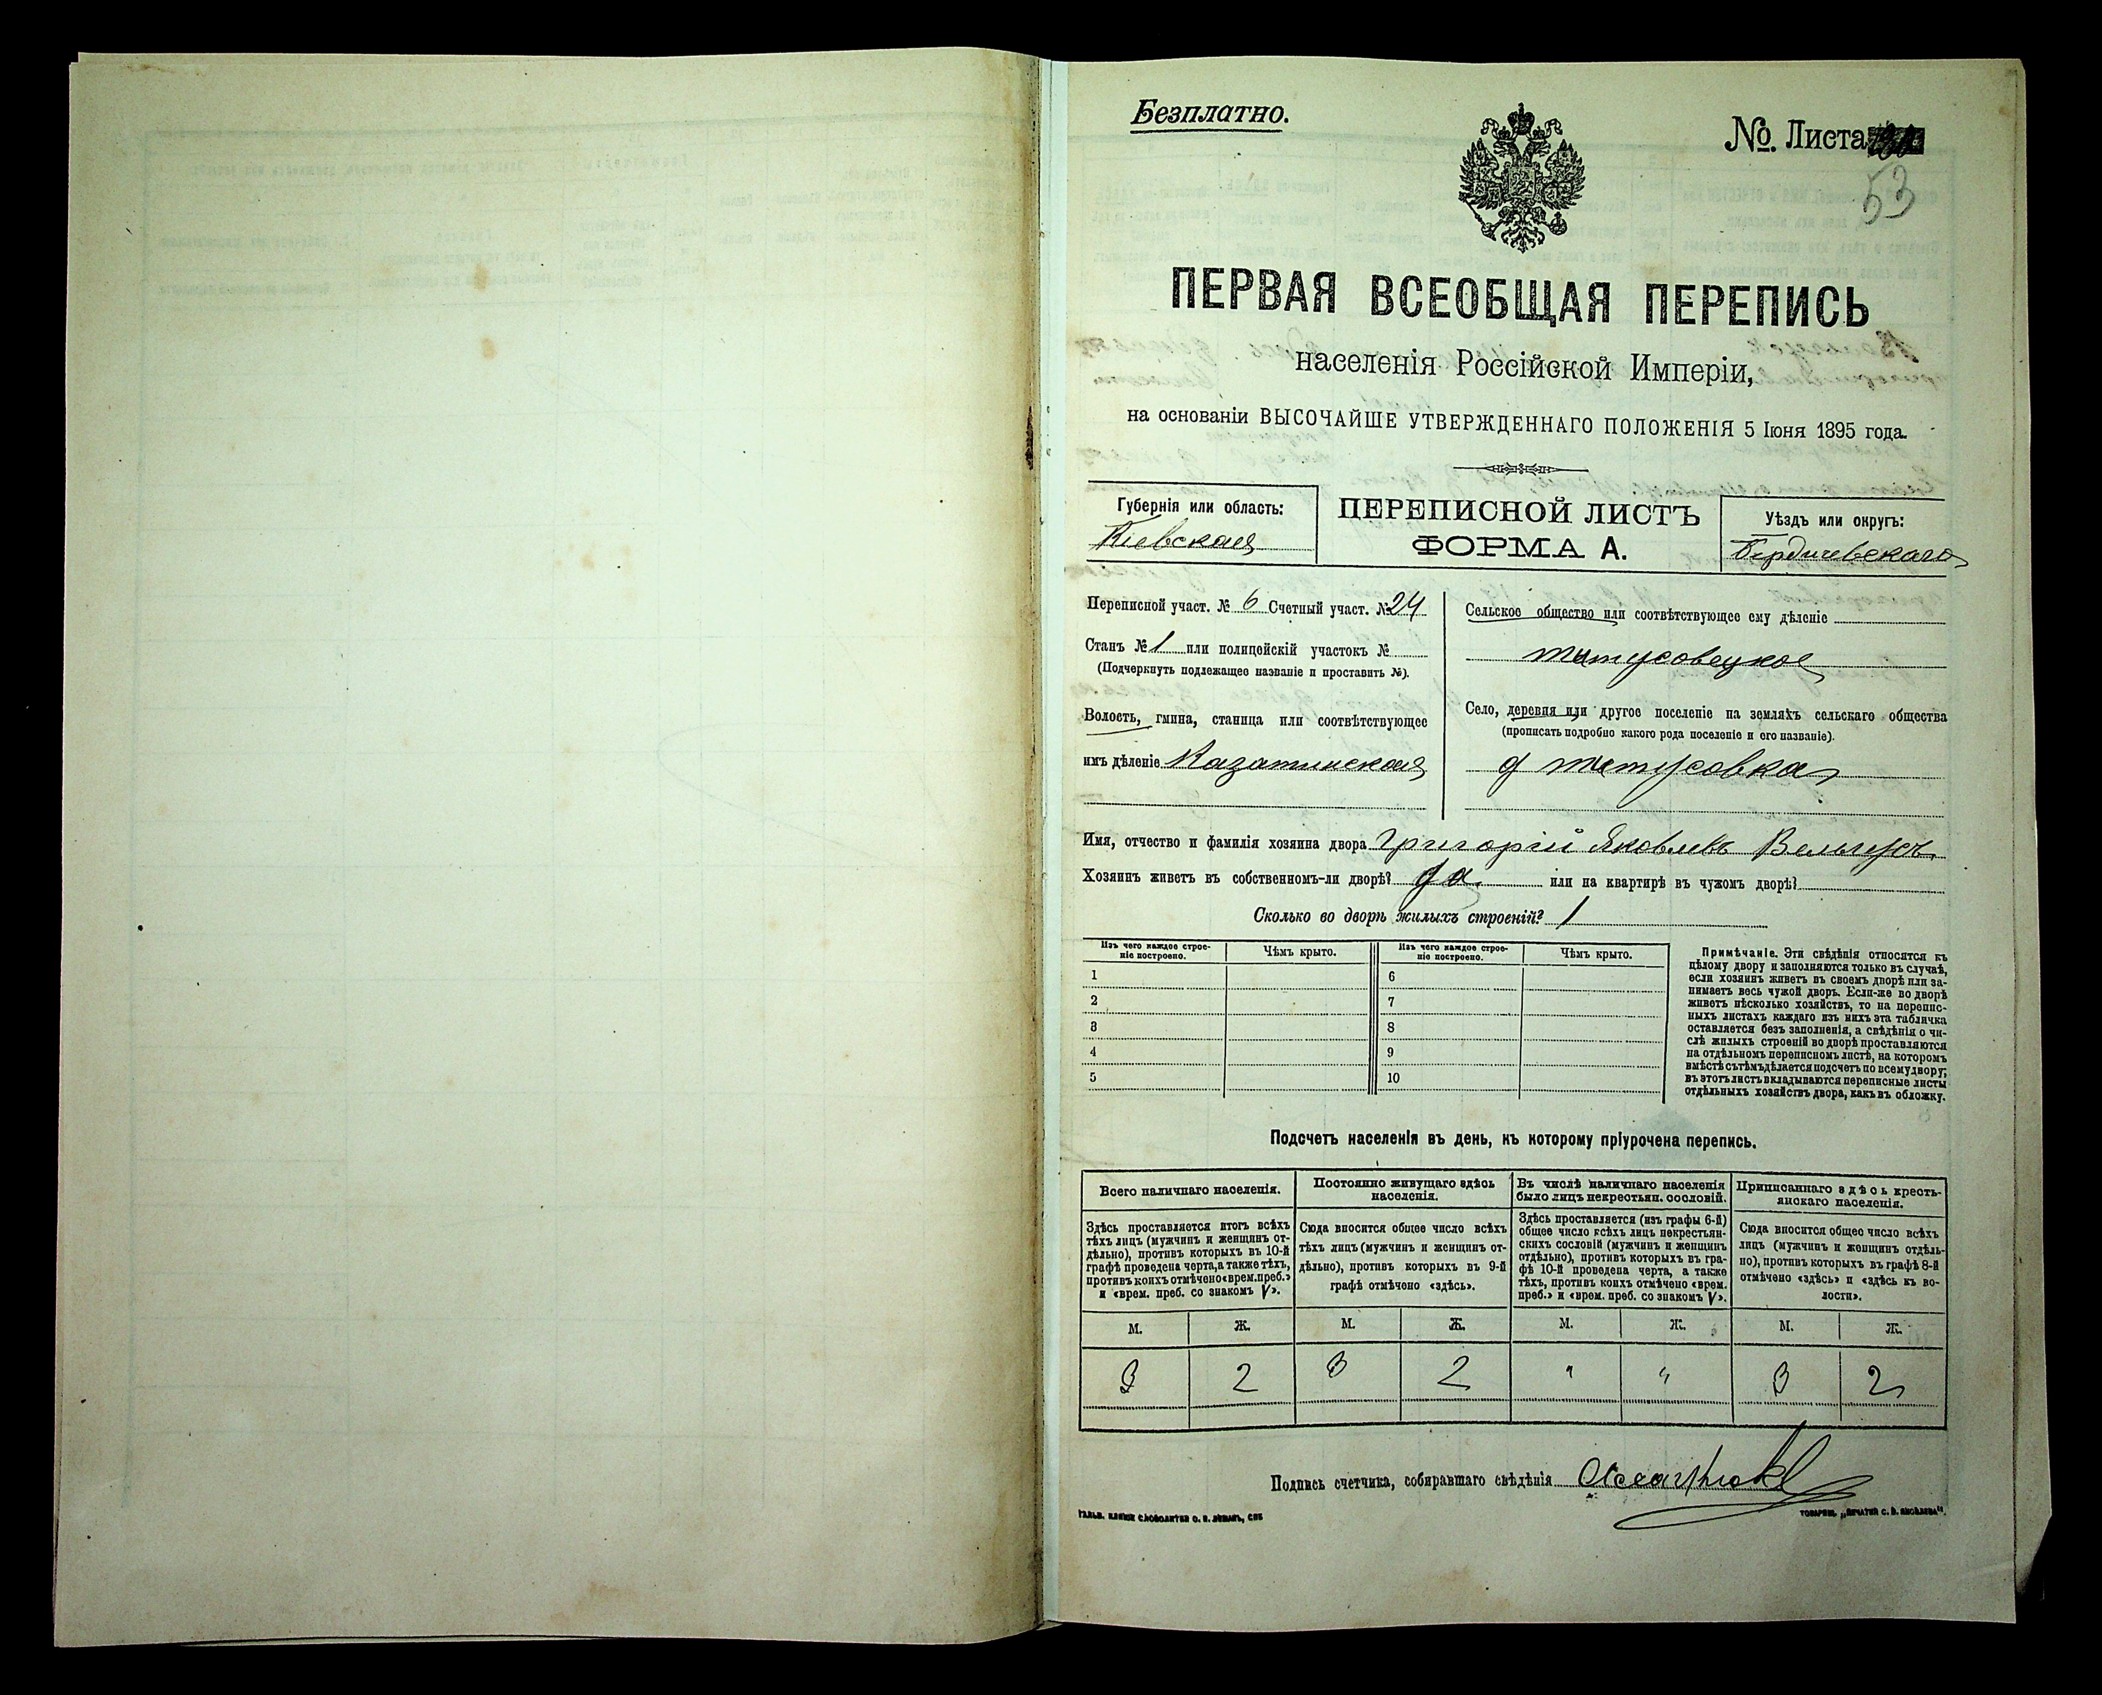 Безплатно.
№. Листа
53
ПЕРВАЯ ВСЕОБЩАЯ ПЕРЕПИСЬ
населенія Россійской Имперіи,
на основаніи ВЫСОЧАЙШЕ УТВЕРЖДЕННАГО ПОЛОЖЕНІЯ 5 Іюня 1895 года.
Губернія или область:
Кіевская
ПЕРЕПИСНОЙ ЛИСТЪ
ФОРМА А.
Уѣздъ или округъ:
Бердичевскаго
Переписной участ. № 6 Счетный участ. № 24
Станъ № 1 или полицейскій участокъ №
(Подчеркнуть подлежащее названіе и проставить №).
Волость, гмина, станица или соотвѣтствующее
имъ дѣленіе Казатинская
Сельское общество или соотвѣтствующее ему дѣленіе
титусовецкое
Село, деревня или другое поселеніе на земляхъ сельскаго общества
(прописать подробно какого рода поселеніе и его названіе).
д титусовка
Имя, отчество и фамилія хозяина двора Григорій Яковлевъ Вельгусъ.
Хозяинъ живетъ въ собственномъ-ли дворѣ? да. или на квартирѣ въ чужомъ дворѣ?
Сколько во дворѣ жилыхъ строеній? 1
Изъ чего каждое строе-
ніе построено.
Чѣмъ крыто.
Изъ чего каждое строе-
ніе построено.
Чѣмъ крыто.
1 6
2 7
3 8
4 9
5 10
Примѣчаніе. Эти свѣдѣнія относятся къ
цѣлому двору и заполняются только въ случаѣ,
если хозяинъ живетъ въ своемъ дворѣ или за-
нимаетъ весь чужой дворъ. Если-же во дворѣ
живетъ нѣсколько хозяйствъ, то на перепис-
ныхъ листахъ каждаго изъ нихъ эта табличка
оставляется безъ заполненія, а свѣдѣнія о чи-
слѣ жилыхъ строеній во дворѣ проставляются
на отдѣльномъ переписномъ листѣ, на которомъ
вмѣстѣ съ тѣмъ дѣлается подсчетъ по всему двору;
въ этотъ листъ вкладываются переписные листы
отдѣльныхъ хозяйствъ двора, какъ въ обложку.
Подсчетъ населенія въ день, къ которому пріурочена перепись.
Всего наличнаго населенія.
Здѣсь проставляется итогъ всѣхъ
тѣхъ лицъ (мужчинъ и женщинъ от-
дѣльно), противъ которыхъ въ 10-й
графѣ проведена черта, а также тѣхъ,
противъ коихъ отмѣчено «врем. преб.»
и «врем. преб. со знакомъ V».
Постоянно живущаго здѣсь
населенія.
Сюда вносится общее число всѣхъ
тѣхъ лицъ (мужчинъ и женщинъ от-
дѣльно), противъ которыхъ въ 9-й
графѣ отмѣчено «здѣсь».
Въ числѣ наличнаго населенія
было лицъ некрестьян. сословій.
Здѣсь проставляется (изъ графы 6-й)
общее число всѣхъ лицъ некрестьян-
скихъ сословій (мужчинъ и женщинъ
отдѣльно), противъ которыхъ въ гра-
фѣ 10-й проведена черта, а также
тѣхъ, противъ коихъ отмѣчено «врем.
преб.» и «врем. преб. со знакомъ V».
Приписаннаго здѣсь кресть-
янскаго населенія.
Сюда вносится общее число всѣхъ
лицъ (мужчинъ и женщинъ отдѣль-
но), противъ которыхъ въ графѣ 8-й
отмѣчено «здѣсь» и «здѣсь къ во-
лости».
М. Ж. М. Ж. М. Ж. М. Ж.
3 2 3 2 " " 3 2
Подпись счетчика, собиравшаго свѣдѣнія